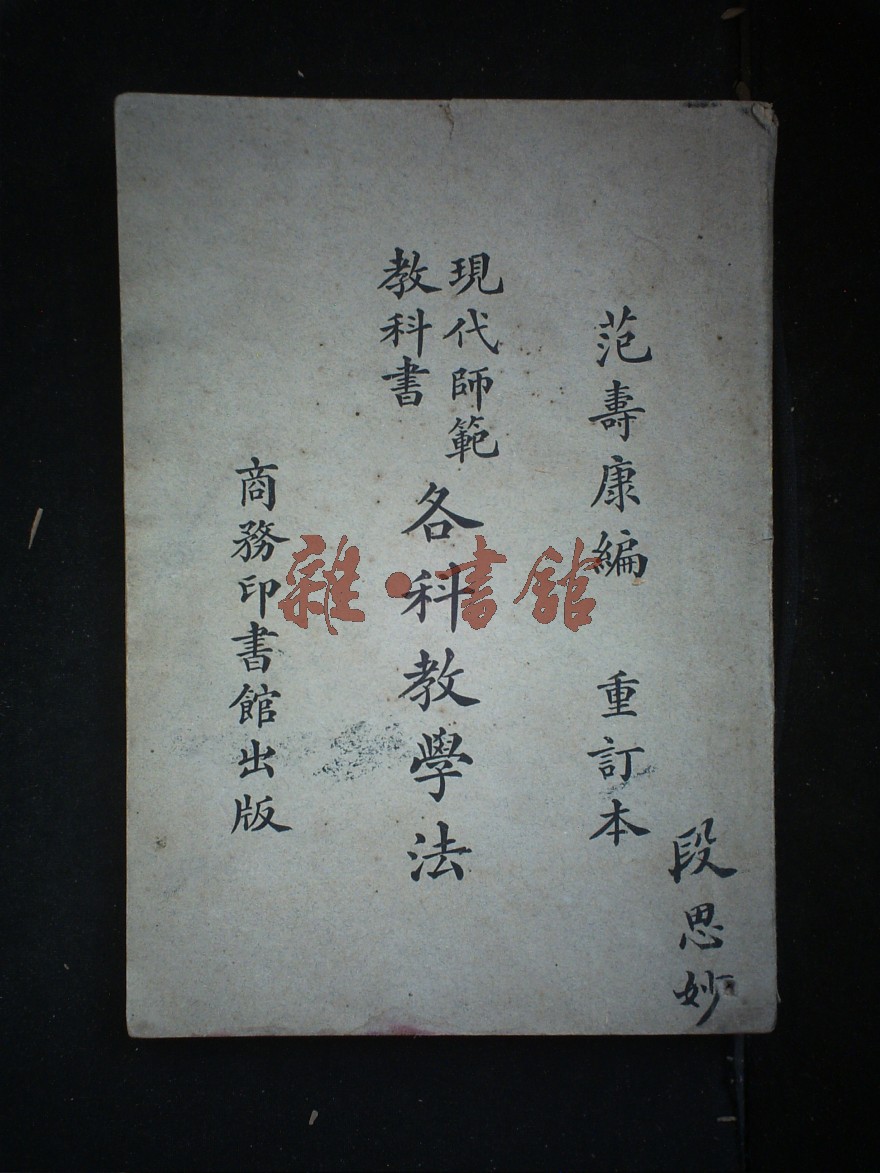 段思妙
范壽康編　重訂本
現代師範
教科書
各科教學法
商務印書館出版
雜·書館